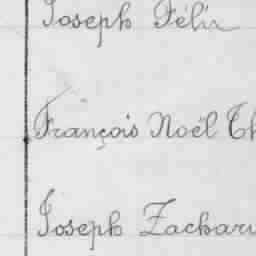 Joseph Félix
François Noël Th
Joseph Zachari